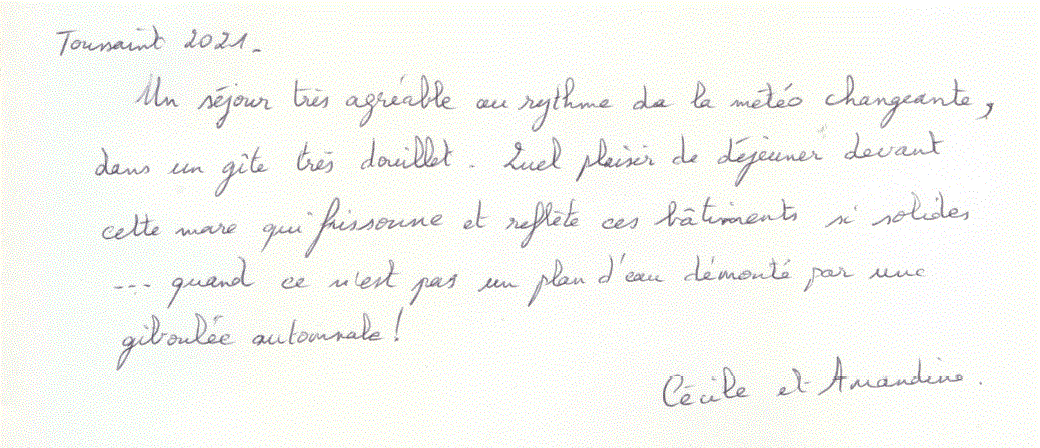 Toussaint 2021.
Un séjour très agréable au rythme de la météo changeante,
dans un gîte très douillet. Quel plaisir de déjeuner devant
cette mare qui frissonne et reflète ces bâtiments si solides
... quand ce n'est pas un plan d'eau démonté par une
giboulée automnale !
Cécile et Amandine.